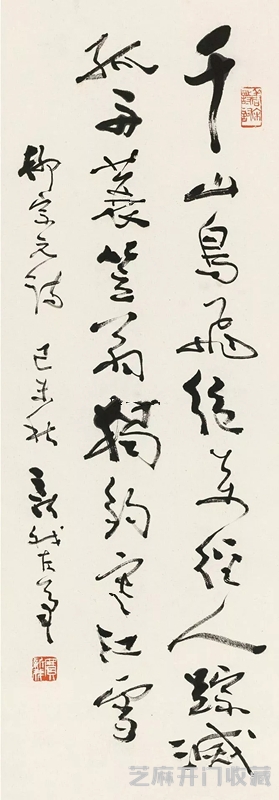 千山鳥飛絕万徑人踪滅
孤舟蓑笠翁獨釣寒江雪
柳宗元詩 己未秋 新我左筆
芝麻开门收藏